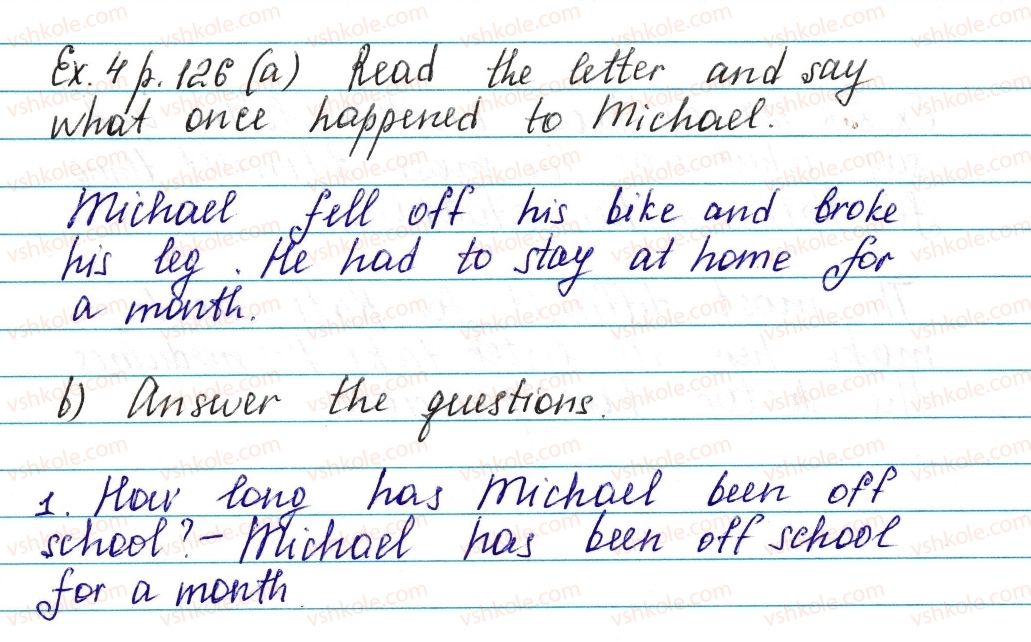 Ex. 4 p. 126 (a) Read the letter and say
what once happened to Michael.
Michael fell off his bike and broke
his leg. He had to stay at home for
a month.
b) Answer the questions.
1. How long has Michael been off
school? – Michael has been off school
for a month